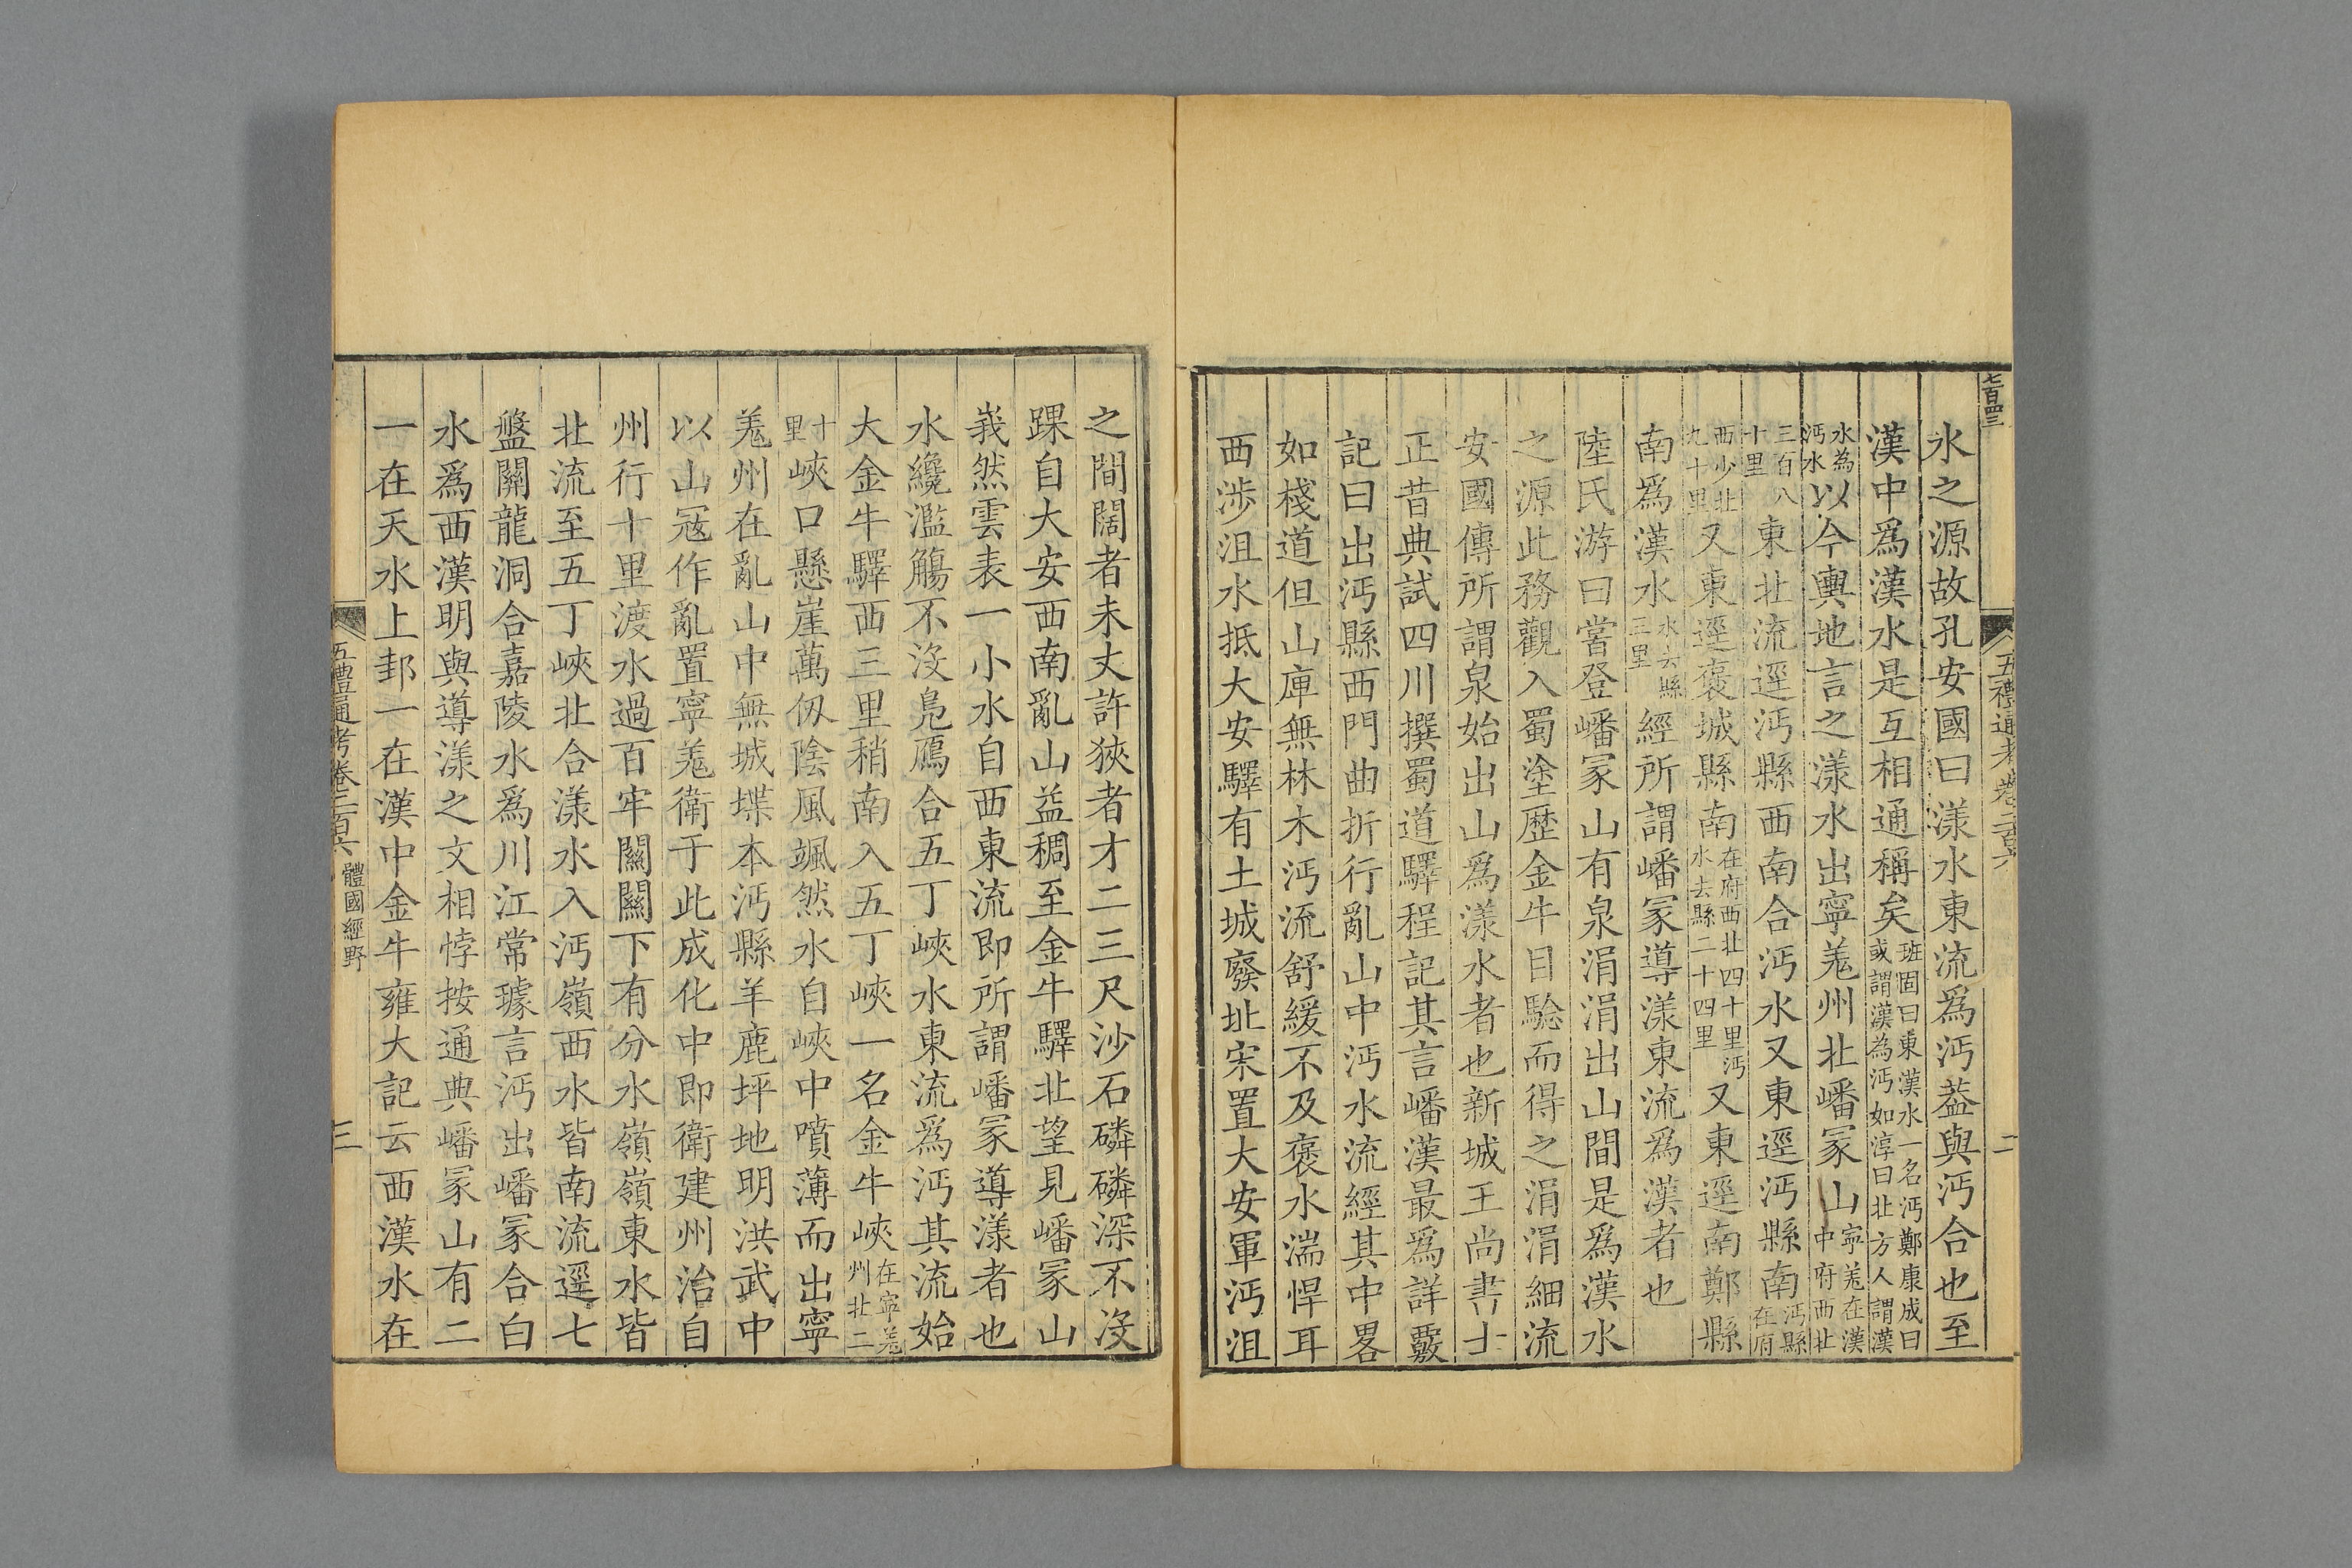 五禮通考卷二百六
二
水之源故孔安國曰漾水東流爲沔葢與沔合也至
漢中爲漢水是互相通稱矣班固曰東漢水一名沔鄭康成曰或謂漢為沔如淳曰北方人謂漢
水為沔水以今輿地言之漾水出寧羗州北嶓冢山寧羗在漢中府西北
三百八十里東北流逕沔縣西南合沔水又東逕沔縣南沔縣在府
西少北九十里又東逕褒城縣南在府西北四十里沔水去縣二十四里又東逕南鄭縣
南爲漢水水去縣三里經所謂嶓冢導漾東流爲漢者也
陸氏游曰嘗登嶓冢山有泉涓涓出山間是爲漢水
之源此務觀入蜀塗歷金牛目驗而得之涓涓細流
安國傳所謂泉始出山爲漾水者也新城王尚書士
正昔典試四川撰蜀道驛程記其言嶓漢最爲詳覈
記曰出沔縣西門曲折行亂山中沔水流經其中畧
如棧道但山庳無林木沔流舒緩不及褒水湍悍耳
西渉沮水抵大安驛有土城廢址宋置大安軍沔沮
之間闊者未丈許狹者才二三尺沙石磷磷深不沒
踝自大安西南亂山益稠至金牛驛北望見嶓冢山
峩然雲表一小水自西東流即所謂嶓冢導漾者也
水纔濫觴不沒鳧鴈合五丁峽水東流爲沔其流始
大金牛驛西三里稍南入五丁峽一名金牛峽在寧羗州北二
十里峽口懸崖萬仭陰風颯然水自峽中噴薄而出寧
羗州在亂山中無城堞本沔縣羊鹿坪地明洪武中
以山冦作亂置寧羗衛于此成化中即衛建州治自
州行十里渡水過百牢關關下有分水嶺嶺東水皆
北流至五丁峽北合漾水入沔嶺西水皆南流逕七
盤關龍洞合嘉陵水爲川江常璩言沔出嶓冢合白
水爲西漢明與導漾之文相悖按通典嶓冢山有二
一在天水上邽一在漢中金牛雍大記云西漢水在
五禮通考卷二百六
體國經野
三